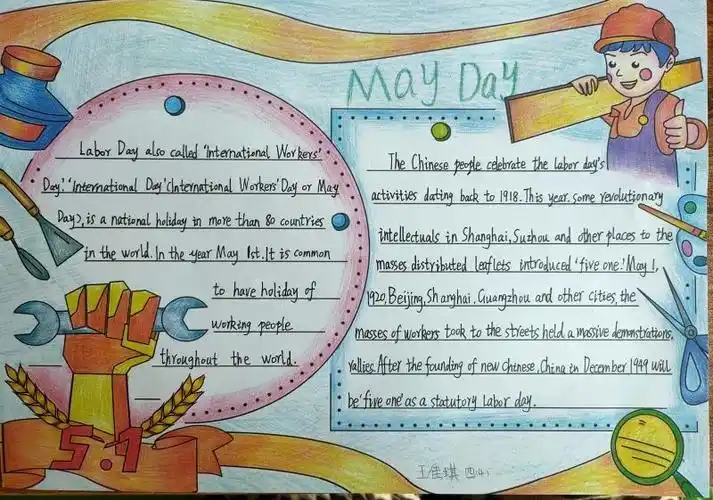 May Day
Labor Day also called 'International Workers'
Day'. 'International Day' (International Workers' Day or May
Day), is a national holiday in more than 80 countries
in the world. In the year May 1st. It is common
to have holiday of
working people
throughout the world.
5.1
The Chinese people celebrate the labor day's
activities dating back to 1918. This year. some revolutionary
intellectuals in Shanghai, Suzhou and other places to the
masses distributed leaflets introduced 'five one.' May 1,
1920, Beijing, Shanghai, Guangzhou and other cities, the
masses of workers took to the streets held a massive demonstrations,
rallies. After the founding of new chinese, China in December 1949 will
be 'five one' as a statutory labor day.
王佳琪 四(4)